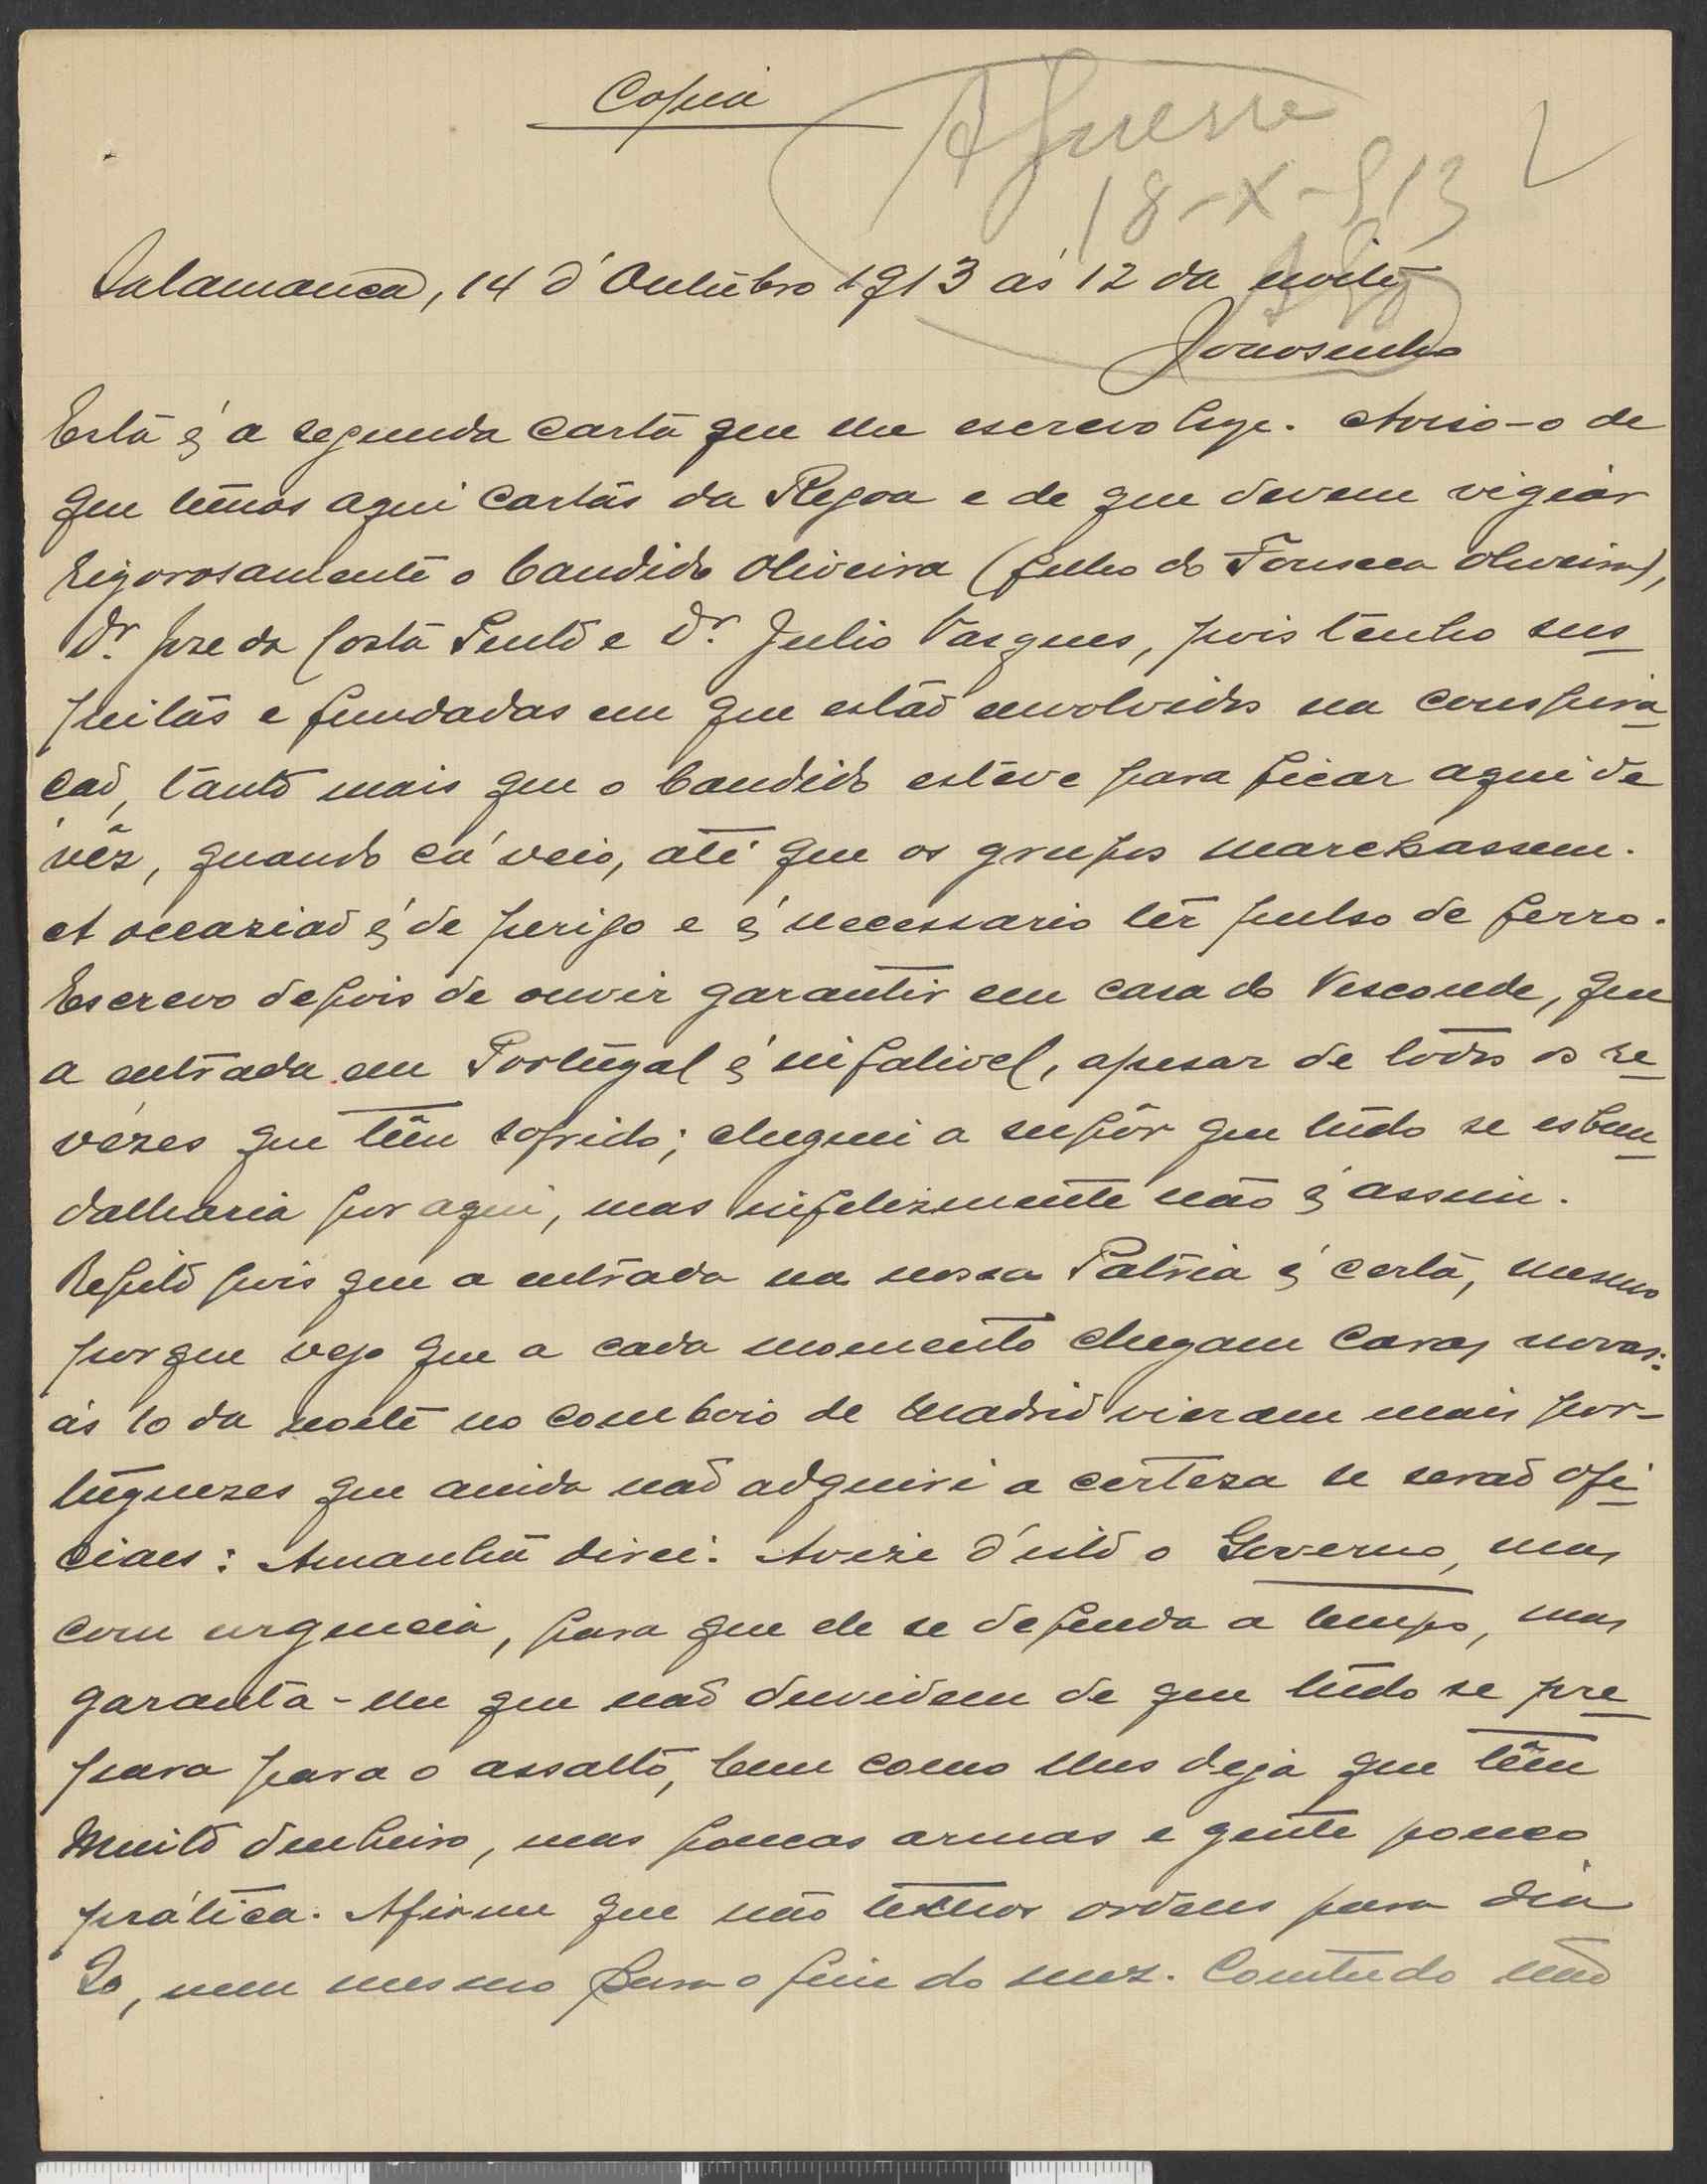 Copia
A Guerra
18-X-913
Salamanca, 14 d'Outubro 1913 ás 12 da noite
Esta é a segunda carta que lhe escrevo hoje. Aviso-o de
que temos aqui cartas da Regoa e de que devem vigiár
rigorosamente o Candido Oliveira (filho do Fonseca Oliveira),
Dr. José da Costa Pinto e Dr. Julio Vasques, pois tenho sus
peitas e fundadas em que estão envolvidos na conspira
ção, tanto mais que o Candido esteve para ficar aqui de
vêz, quando cá veio, até que os grupos marchassem.
A occazião é de perigo e é necessario têr pulso de ferro.
Escrevo depois de ouvir garantir em casa do Visconde, que
a entrada em Portugal é infalivel, apesar de todos os re
vézes que têm sofrido; cheguei a supôr que tudo se esban
dalharia por aqui, mas infelizmente não é assim.
Repito pois que a entrada na nossa Patria é certa, mesmo
porque vejo que a cada momento chegam caras novas:
ás 10 da noite no comboio de Madrid vieram mais por-
tuguezes que ainda não adquiri a certeza se serão ofi
ciaes: Amanhã direi. Avize d'isto o Governo, mas
com urgencia, para que ele se defenda a tempo, mas
garanta-lhe que não duvidem de que tudo se pre
para para o assalto, bem como lhes diga que têm
muito dinheiro, mas poucas armas e gente pouco
prática. Afirme que não temos ordens para dia
20, nem mesmo para o fim do mez. Comtudo não